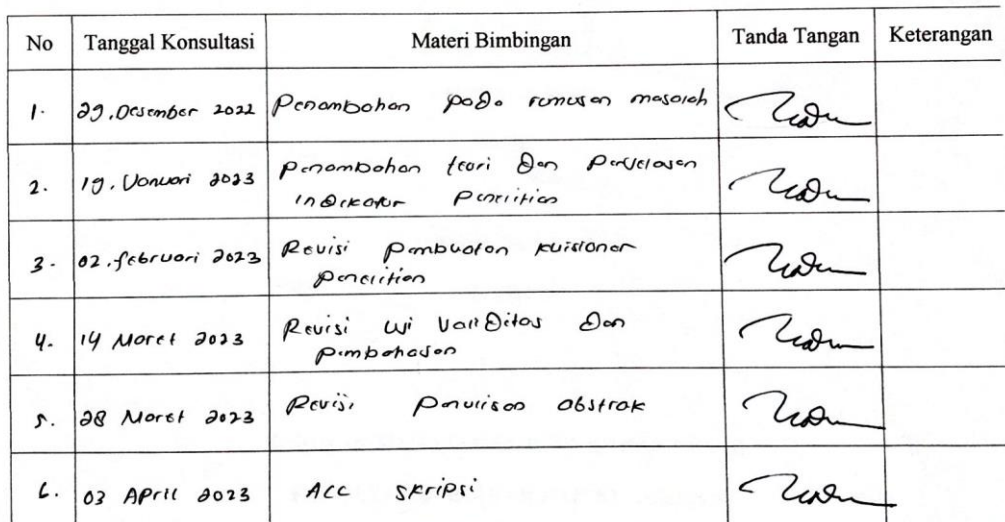 No Tanggal Konsultasi Materi Bimbingan Tanda Tangan Keterangan
1. 29. Desember 2022 Penambahan pada rumusan masalah
2. 19. Januari 2023 Penambahan teori dan penjelasan
indikator penelitian
3. 02. februari 2023 Revisi pembuatan kuisioner
penelitian
4. 14 Maret 2023 Revisi uji validitas dan
pembahasan
5. 28 Maret 2023 Revisi penulisan abstrak
6. 03 April 2023 ACC skripsi